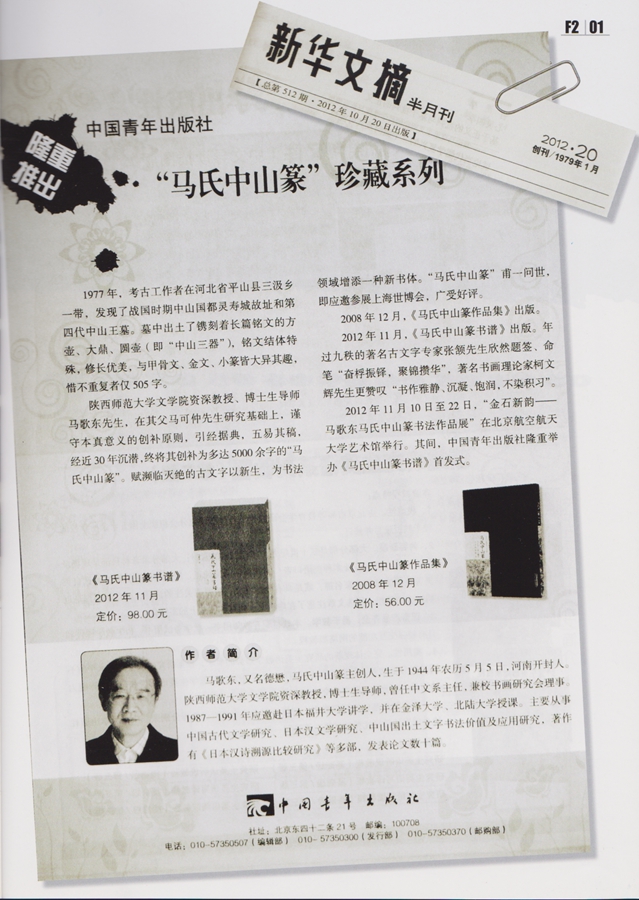 F2 01
新华文摘 半月刊
【总第512期·2012年10月20日出版】
2012·20
创刊/1979年1月
中国青年出版社
隆重
推出
“马氏中山篆”珍藏系列
1977年，考古工作者在河北省平山县三汲乡
一带，发现了战国时期中山国都灵寿城故址和第
四代中山王墓。墓中出土了镌刻着长篇铭文的方
壶、大鼎、圆壶（即“中山三器”），铭文结体特
殊，修长优美，与甲骨文、金文、小篆皆大异其趣，
惜不重复者仅505字。
陕西师范大学文学院资深教授、博士生导师
马歌东先生，在其父马可仲先生研究基础上，谨
守本真意义的创补原则，引经据典，五易其稿，
经近30年沉潜，终将其创补为多达5000余字的“马
氏中山篆”。赋濒临灭绝的古文字以新生，为书法
领域增添一种新书体。“马氏中山篆”甫一问世，
即应邀参展上海世博会，广受好评。
2008年12月，《马氏中山篆作品集》出版。
2012年11月，《马氏中山篆书谱》出版。年
过九秩的著名古文字专家张颔先生欣然题签、命
笔“奋桴振铎，聚锦攒华”，著名书画理论家柯文
辉先生更赞叹“书作雅静、沉凝、饱润，不染积习”。
2012年11月10日至22日，“金石新韵——
马歌东马氏中山篆书法作品展”在北京航空航天
大学艺术馆举行。其间，中国青年出版社隆重举
办《马氏中山篆书谱》首发式。
《马氏中山篆书谱》
2012年11月
定价：98.00元
《马氏中山篆作品集》
2008年12月
定价：56.00元
作者简介
马歌东，又名德懋，马氏中山篆主创人，生于1944年农历5月5日，河南开封人。
陕西师范大学文学院资深教授，博士生导师，曾任中文系主任，兼校书画研究会理事。
1987—1991年应邀赴日本福井大学讲学，并在金泽大学、北陆大学授课。主要从事
中国古代文学研究、日本汉文学研究、中山国出土文字书法价值及应用研究，著作
有《日本汉诗溯源比较研究》等多部，发表论文数十篇。
中国青年出版社
社址：北京东四十二条21号 邮编：100708
电话：010-57350507（编辑部） 010-57350300（发行部） 010-57350370（邮购部）